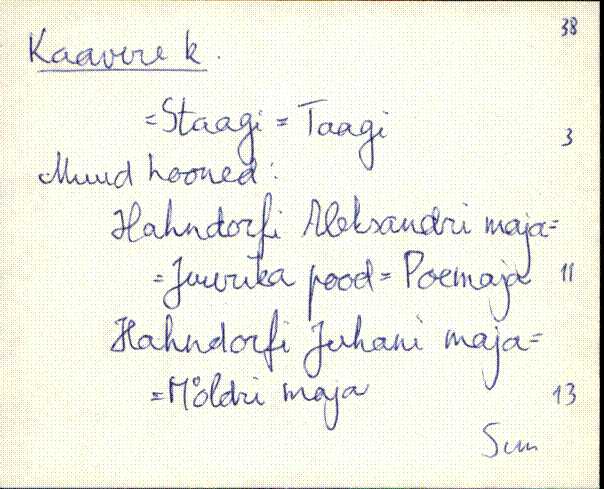 38
Kaavere k.
=Staagi = Taagi 3
Muud hooned:
Hahndorfi Aleksandri maja=
=Juurika pood = Poemaja 11
Hahndorfi Juhani maja=
=Möldri maja 13